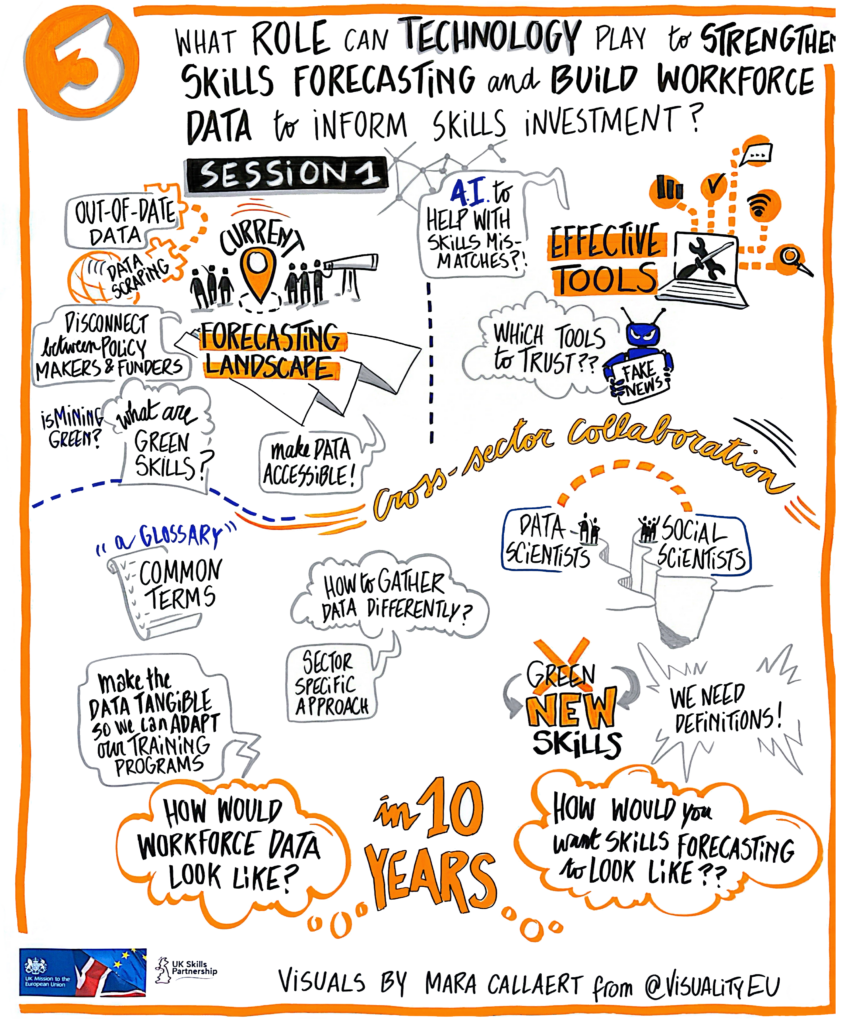 3
WHAT ROLE CAN TECHNOLOGY PLAY to STRENGTHE
SKILLS FORECASTING and BUILD WORKFORCE
DATA to INFORM SKILLS INVESTMENT?
SESSION 1
OUT-OF-DATE
DATA
DATA
SCRAPING
CURRENT
FORECASTING
LANDSCAPE
DISCONNECT
between POLICY
MAKERS & FUNDERS
is MINING
GREEN?
what are
GREEN
SKILLS?
make DATA
ACCESSIBLE!
A.I. to
HELP WITH
SKILLS MIS-
MATCHES?!
EFFECTIVE
TOOLS
WHICH TOOLS
to TRUST??
FAKE
NEWS
Cross-sector collaboration
"a GLOSSARY"
COMMON
TERMS
HOW to GATHER
DATA DIFFERENTLY?
SECTOR
SPECIFIC
APPROACH
DATA
SCIENTISTS
SOCIAL
SCIENTISTS
make the
DATA TANGIBLE
so we can ADAPT
our TRAINING
PROGRAMS
GREEN
NEW
SKILLS
WE NEED
DEFINITIONS!
HOW WOULD
WORKFORCE DATA
LOOK LIKE?
in 10
YEARS
HOW WOULD you
want SKILLS FORECASTING
to LOOK LIKE??
UK Mission to the
European Union
UK Skills
Partnership
VISUALS BY MARA CALLAERT from @VISUALITYEU